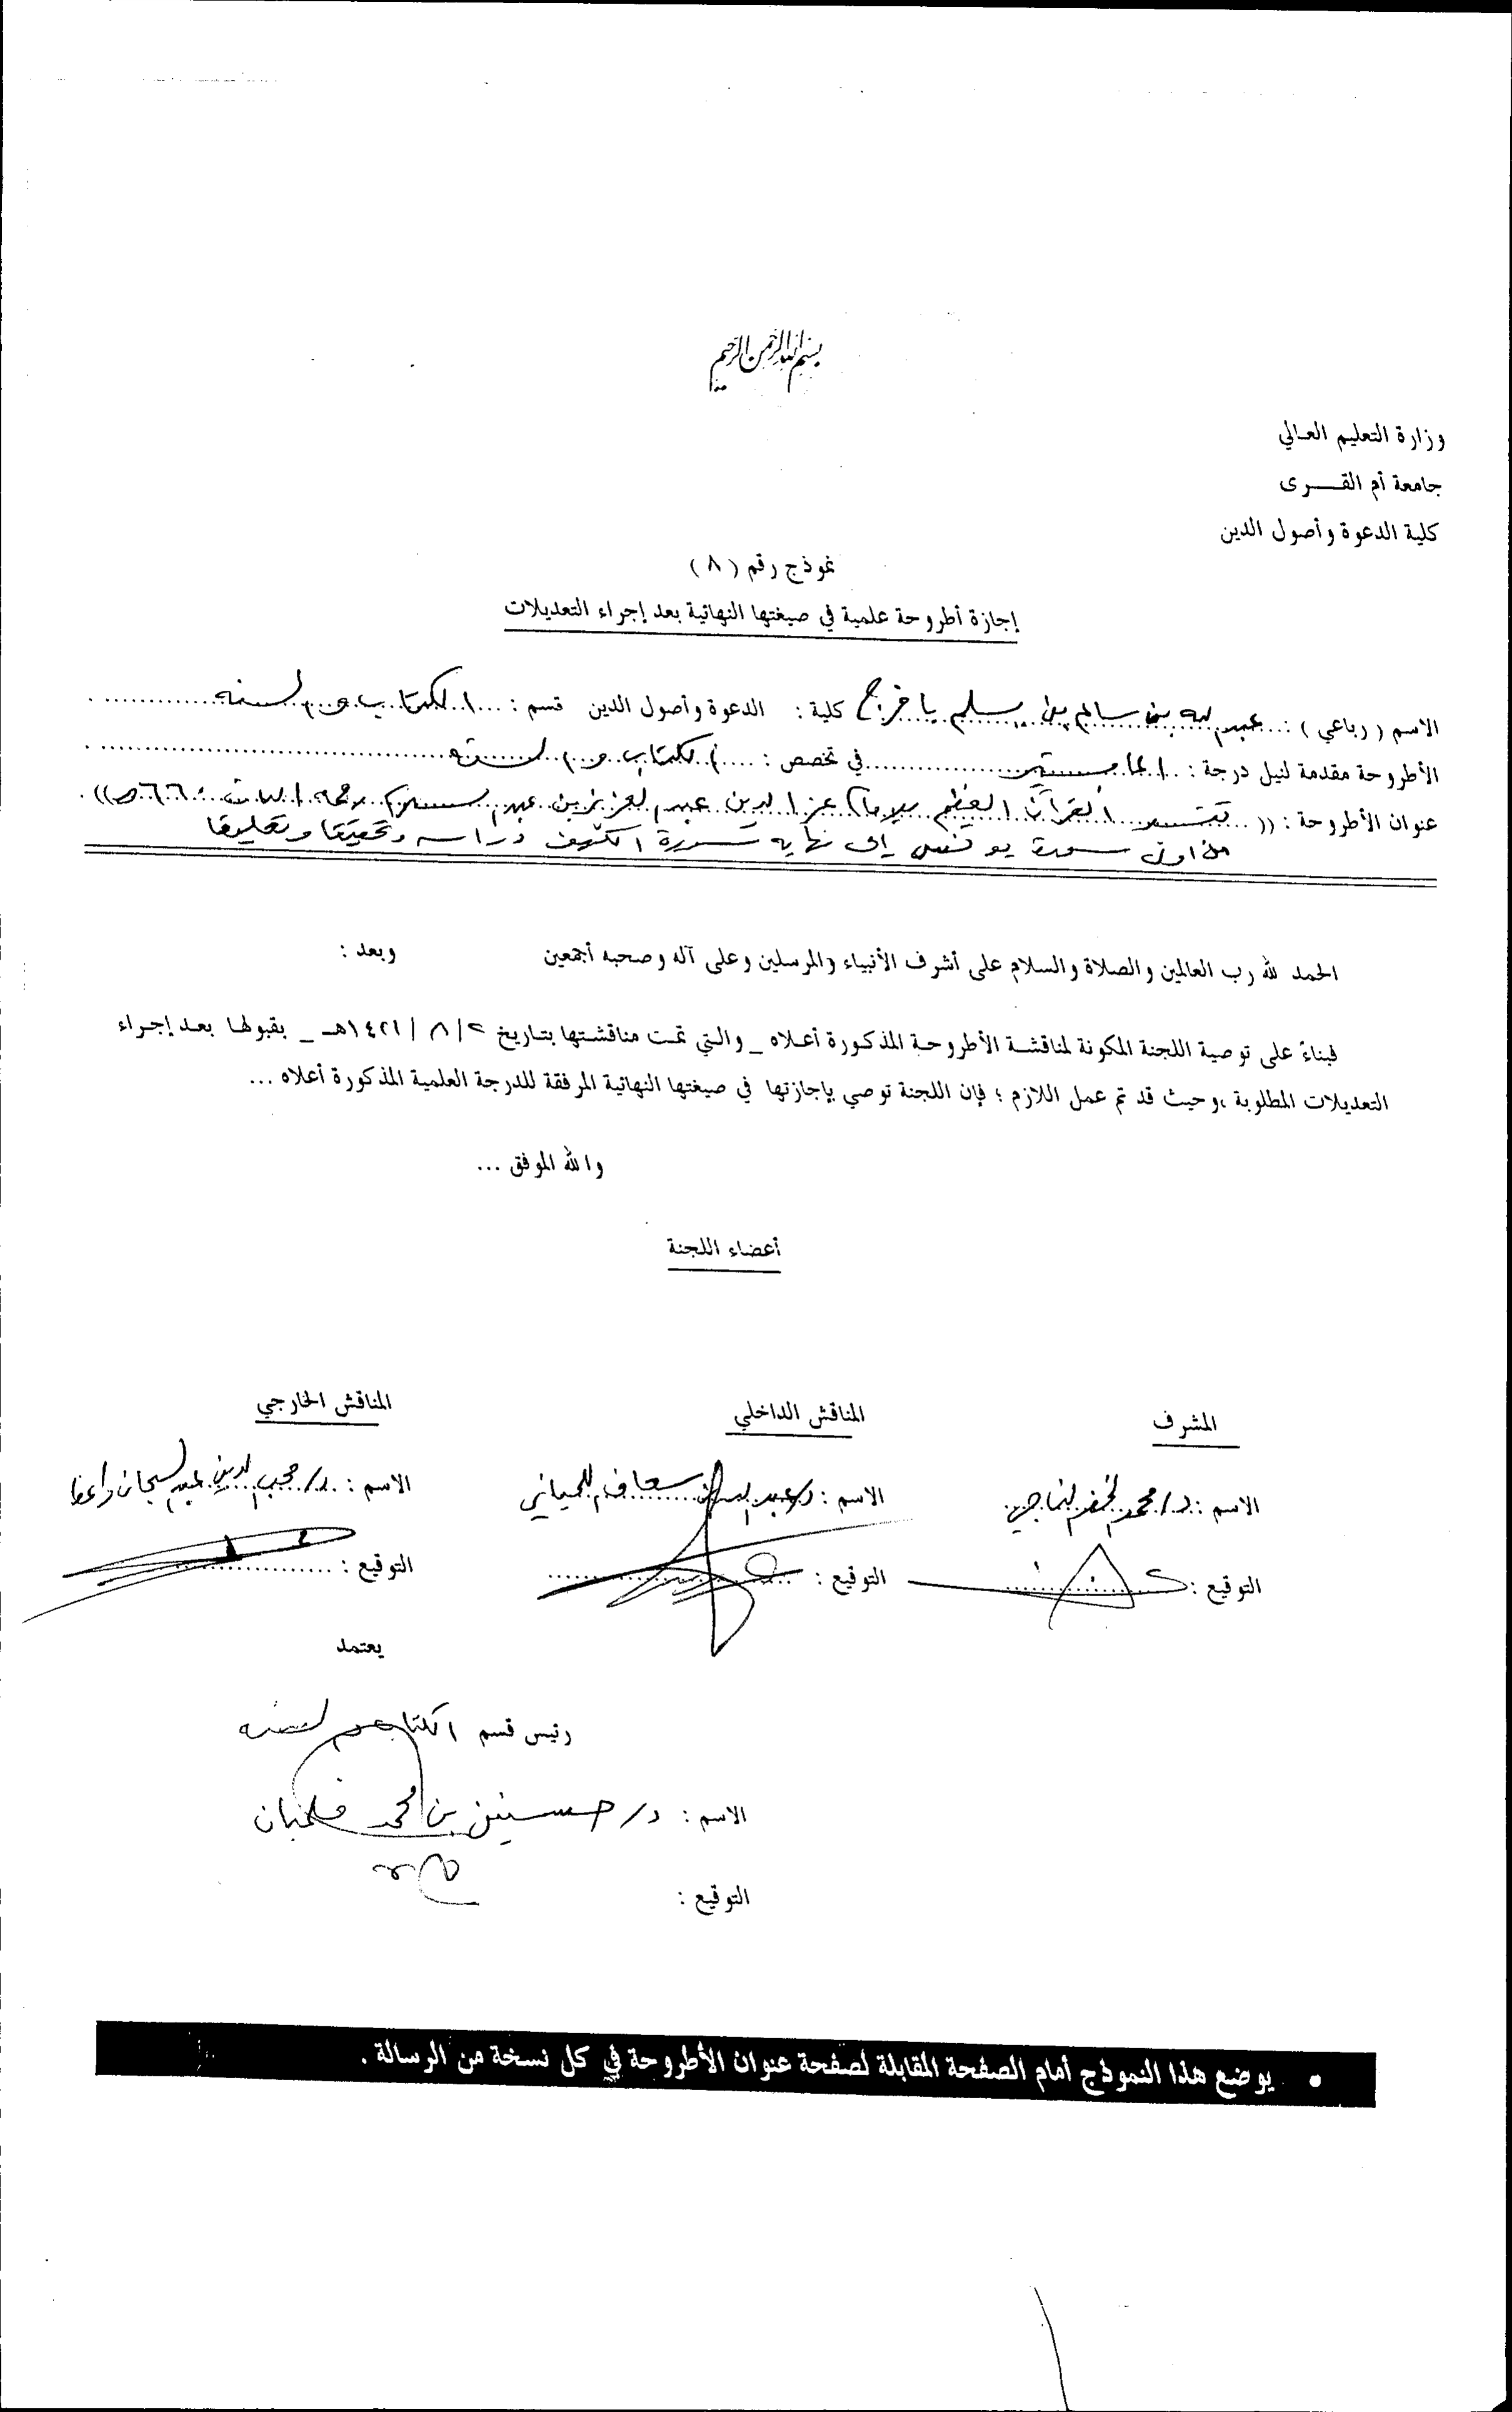 بسم الله الرحمن الرحيم
وزارة التعليم العالي
جامعة أم القـــرى
كلية الدعوة وأصول الدين
نموذج رقم ( ٨ )
إجازة أطروحة علمية في صيغتها النهائية بعد إجراء التعديلات
الاسم ( رباعي ) : عبد الله بن سالم بن يسلم بافرج كلية : الدعوة وأصول الدين قسم : الكتاب والسنه
الأطروحة مقدمة لنيل درجة : الماجستير في تخصص : الكتاب والسنه
عنوان الأطروحة : (( تفسير القرآن العظيم للإمام عز الدين عبد العزيز بن عبد السلام رحمه الله ت ٦٦٠ هـ )) .
من اول سورة يونس إلى نهاية سورة الكهف دراسه وتحقيقا وتعليقا
الحمد لله رب العالمين والصلاة والسلام على أشرف الأنبياء والمرسلين وعلى آله وصحبه أجمعين وبعد :
فبناءً على توصية اللجنة المكونة لمناقشة الأطروحة المذكورة أعلاه _ والتي تمت مناقشتها بتاريخ ٢ / ٨ / ١٤٢١هـ _ بقبولها بعد إجراء
التعديلات المطلوبة ، وحيث قد تم عمل اللازم ؛ فإن اللجنة توصي بإجازتها في صيغتها النهائية المرفقة للدرجة العلمية المذكورة أعلاه ...
والله الموفق ...
أعضاء اللجنة
المشرف المناقش الداخلي المناقش الخارجي
الاسم : د/ محمد الخضر الناجي الاسم : د/ عبد الله سعاف اللحياني الاسم : د/ محب الدين عبد السبحان واعظ
التوقيع : التوقيع : التوقيع :
يعتمد
رئيس قسم الكتاب والسنه
الاسم : د/ حسنين بن محمد فلمبان
التوقيع :
• يوضع هذا النموذج أمام الصفحة المقابلة لصفحة عنوان الأطروحة في كل نسخة من الرسالة .